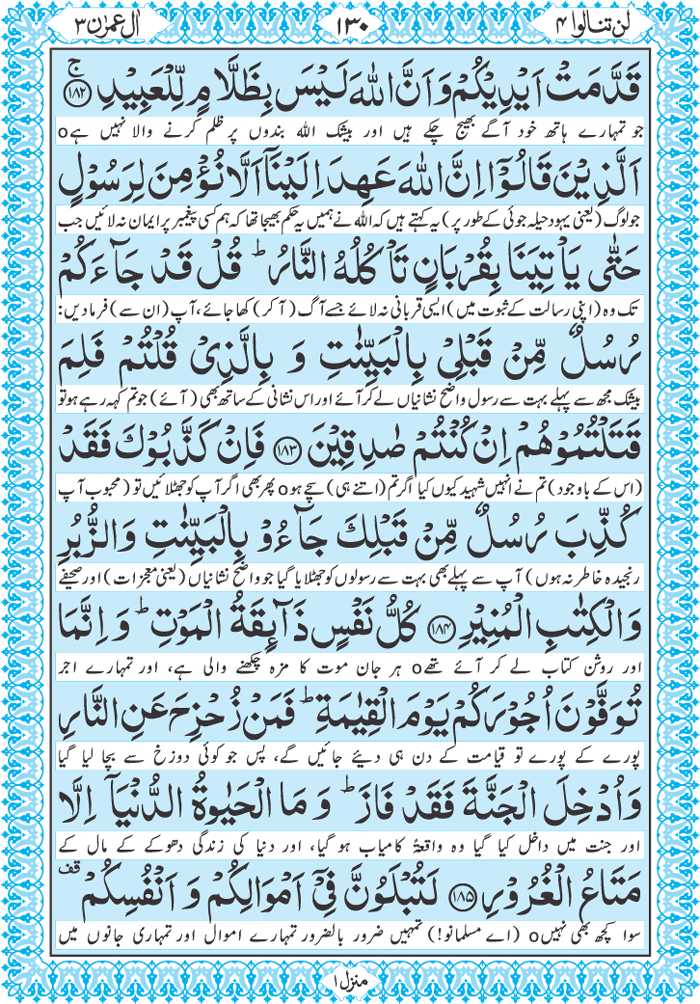 لن تنالوا ۴
۱۳۰
اٰل عمرٰن ۳
قَدَّمَتْ اَيْدِيْكُمْ وَ اَنَّ اللّٰهَ لَيْسَ بِظَلَّامٍ لِّلْعَبِيْدِ ۚ﴿۱۸۲﴾
جو تمہارے ہاتھ خود آگے بھیج چکے ہیں اور بیشک اللہ بندوں پر ظلم کرنے والا نہیں ہےo
اَلَّذِيْنَ قَالُوْۤا اِنَّ اللّٰهَ عَهِدَ اِلَيْنَاۤ اَلَّا نُؤْمِنَ لِرَسُوْلٍ
جو لوگ (یعنی یہود حیلہ جوئی کے طور پر) یہ کہتے ہیں کہ اللہ نے ہمیں یہ حکم بھیجا تھا کہ ہم کسی پیغمبر پر ایمان نہ لائیں جب
حَتّٰى يَاْتِيَنَا بِقُرْبَانٍ تَاْكُلُهُ النَّارُ ؕ قُلْ قَدْ جَآءَكُمْ
تک وہ (اپنی رسالت کے ثبوت میں) ایسی قربانی نہ لائے جسے آگ (آ کر) کھا جائے، آپ (ان سے) فرما دیں:
رُسُلٌ مِّنْ قَبْلِيْ بِالْبَيِّنٰتِ وَ بِالَّذِيْ قُلْتُمْ فَلِمَ
بیشک مجھ سے پہلے بہت سے رسول واضح نشانیاں لے کر آئے اور اس نشانی کے ساتھ بھی (آئے) جو تم کہہ رہے ہو تو
قَتَلْتُمُوْهُمْ اِنْ كُنْتُمْ صٰدِقِيْنَ ﴿۱۸۳﴾ فَاِنْ كَذَّبُوْكَ فَقَدْ
(اس کے باوجود) تم نے انہیں شہید کیوں کیا اگر تم (اتنے ہی) سچے ہوo پھر بھی اگر آپ کو جھٹلائیں تو (محبوب آپ
كُذِّبَ رُسُلٌ مِّنْ قَبْلِكَ جَآءُوْ بِالْبَيِّنٰتِ وَ الزُّبُرِ
رنجیدہ خاطر نہ ہوں) آپ سے پہلے بھی بہت سے رسولوں کو جھٹلایا گیا جو واضح نشانیاں (یعنی معجزات) اور صحیفے
وَ الْكِتٰبِ الْمُنِيْرِ ﴿۱۸۴﴾ كُلُّ نَفْسٍ ذَآىِٕقَةُ الْمَوْتِ ؕ وَ اِنَّمَا
اور روشن کتاب لے کر آئے تھےo ہر جان موت کا مزہ چکھنے والی ہے، اور تمہارے اجر
تُوَفَّوْنَ اُجُوْرَكُمْ يَوْمَ الْقِيٰمَةِ ؕ فَمَنْ زُحْزِحَ عَنِ النَّارِ
پورے کے پورے تو قیامت کے دن ہی دیئے جائیں گے، پس جو کوئی دوزخ سے بچا لیا گیا
وَ اُدْخِلَ الْجَنَّةَ فَقَدْ فَازَ ؕ وَ مَا الْحَيٰوةُ الدُّنْيَاۤ اِلَّا
اور جنت میں داخل کیا گیا وہ واقعۃً کامیاب ہو گیا، اور دنیا کی زندگی دھوکے کے مال کے
مَتَاعُ الْغُرُوْرِ ﴿۱۸۵﴾ لَتُبْلَوُنَّ فِيْۤ اَمْوَالِكُمْ وَ اَنْفُسِكُمْ ۫قف
سوا کچھ بھی نہیںo (اے مسلمانو!) تمہیں ضرور بالضرور تمہارے اموال اور تمہاری جانوں میں
منزل ۱